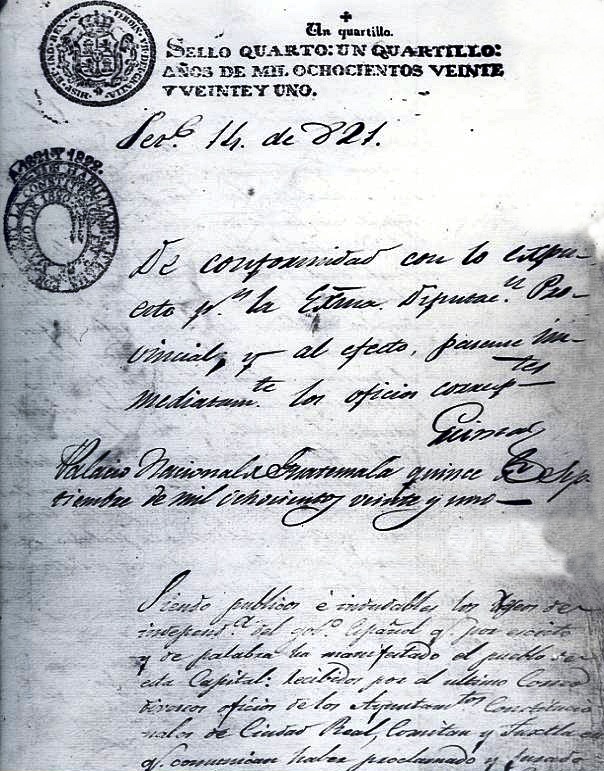 Un quartillo.
SELLO QUARTO: UN QUARTILLO:
AÑOS DE MIL OCHOCIENTOS VEINTE
Y VEINTE Y UNO.
14. de 821.
1821 Y 1822.
De conformidad con lo expu-
esto p.r la Exma. Diputac.n Pro-
vincial, y al efecto, pasense in-
mediatam.te los oficios corresp.tes
Palacio Nacional de Guatemala quince de Sep-
tiembre de mil ochocientos veinte y uno
Siendo publicos é indudables los deseos de
independ.a del gob.o Español q.e por escrito
y de palabra ha manifestado el pueblo de
esta Capital: recibidos por el ultimo Correo
diversos oficios de los Ayuntam.tos Constitucio-
nales de Ciudad Real, Comitan y Tuxtla en
q.e comunican haber proclamado y jurado